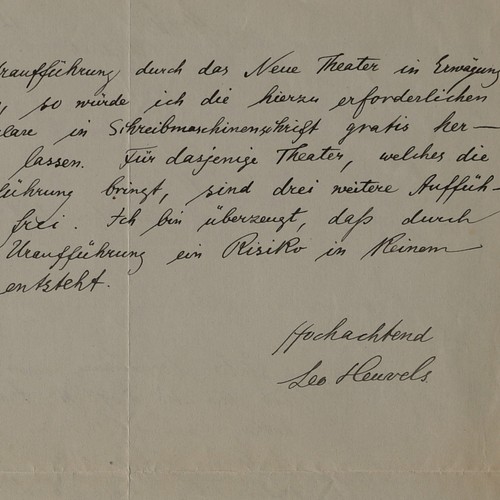 raufführung durch das Neue Theater in Erwägung
so würde ich die hierzu erforderlichen
lare in Schreibmaschinenschrift gratis her-
lassen. Für dasjenige Theater, welches die
führung bringt, sind drei weitere Auffüh-
frei. Ich bin überzeugt, daß durch
Uraufführung ein Risiko in keinem
entsteht.
Hochachtend
Leo Heuvels.